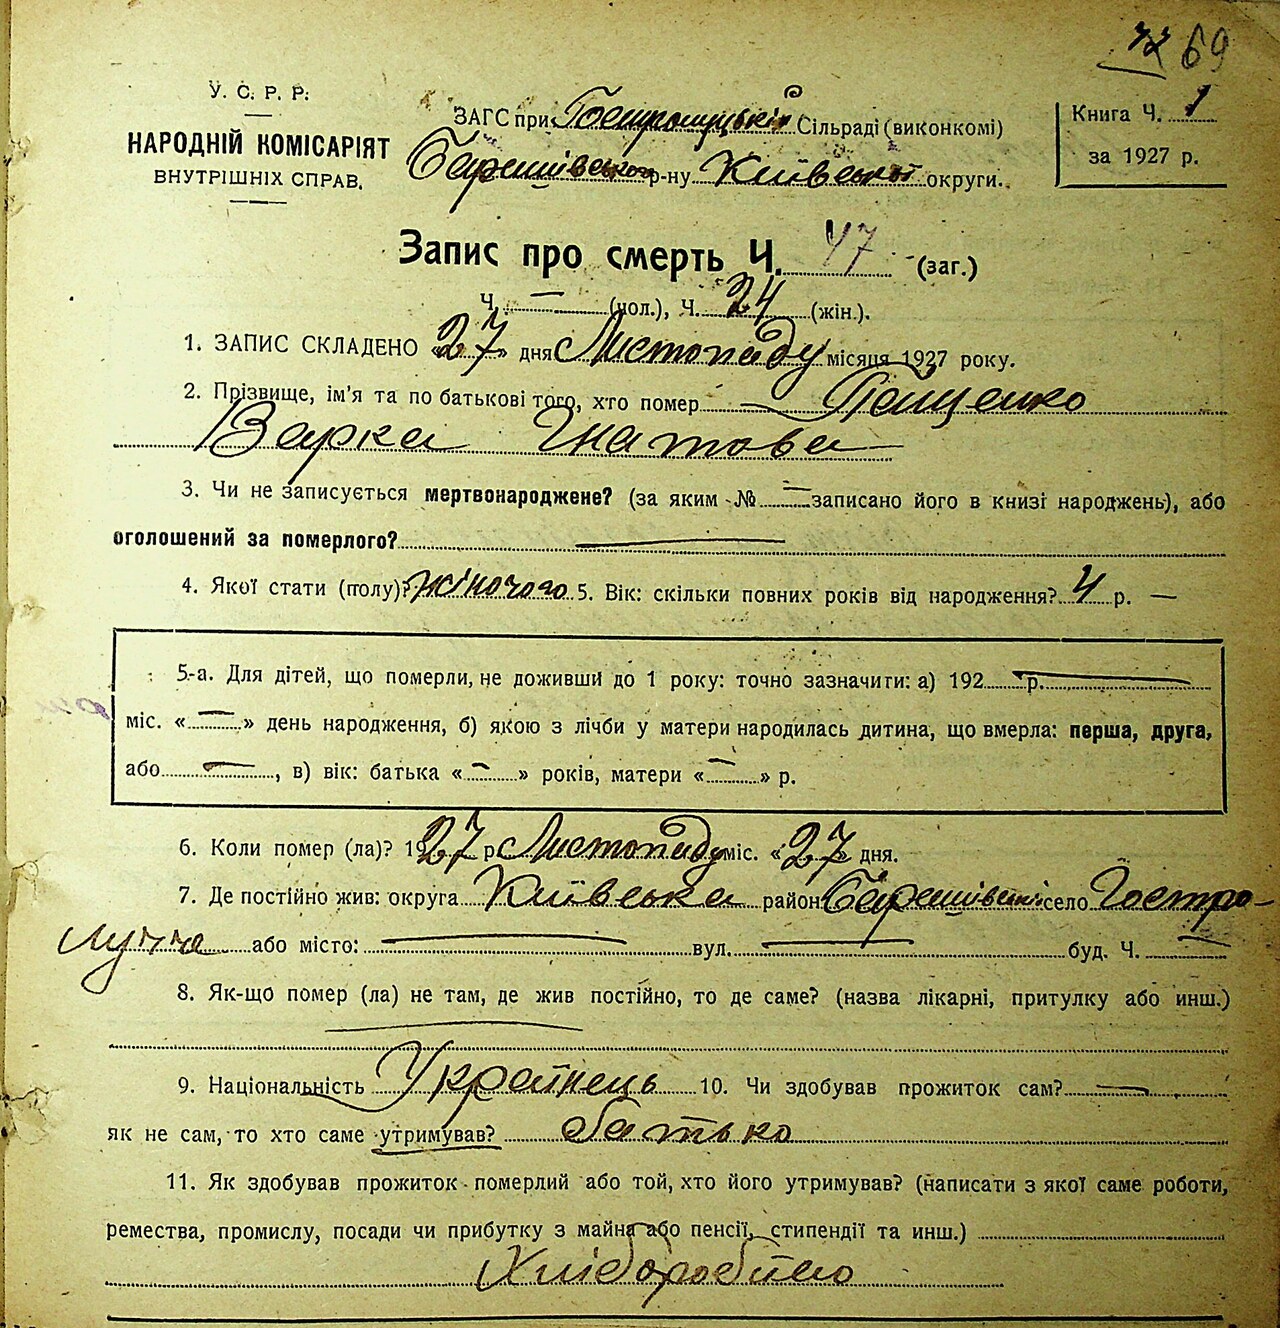 69
У. С. Р. Р.
НАРОДНІЙ КОМІСАРІЯТ
ВНУТРІШНІХ СПРАВ.
ЗАГС при Гостролуцькій Сільраді (виконкомі)
Баришівського р-ну Київської округи.
Книга Ч. 1
за 1927 р.
Запис про смерть Ч. 47 (заг.)
Ч. — (чол.), Ч. 24 (жін.).
1. ЗАПИС СКЛАДЕНО «27» дня Листопаду місяця 1927 року.
2. Прізвище, ім'я та по батькові того, хто помер — Пащенко
Варка Гнатова
3. Чи не записується мертвонароджене? (за яким № — записано його в книзі народжень), або
оголошений за померлого? —
4. Якої стати (полу)? жіночого 5. Вік: скільки повних років від народження? 4 р. —
5-а. Для дітей, що померли, не доживши до 1 року: точно зазначити: а) 192 р. —
міс. « — » день народження, б) якою з лічби у матери народилась дитина, що вмерла: перша, друга,
або — , в) вік: батька « — » років, матери « — » р.
6. Коли помер (ла)? 1927 р. Листопаду міс. «27» дня.
7. Де постійно жив: округа Київська район Баришівський село Гостро-
лучче або місто: — вул. — буд. Ч. —
8. Як-що помер (ла) не там, де жив постійно, то де саме? (назва лікарні, притулку або инш.)
—
9. Національність Українець 10. Чи здобував прожиток сам? —
як не сам, то хто саме утримував? батько
11. Як здобував прожиток померлий або той, хто його утримував? (написати з якої саме роботи,
ремества, промислу, посади чи прибутку з майна або пенсії, стипендії та инш.)
Хліборобство